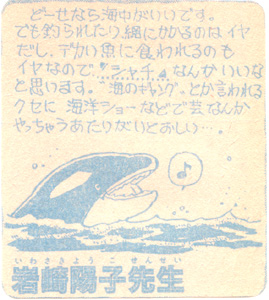 どーせなら海中がいいです。
でも釣られたり、網にかかるのはイヤ
だし、デカい魚に食われるのも
イヤなので、"シャチ"なんかいいな
と思います。"海のギャング"とか言われる
クセに海洋ショーなどで芸なんか
やっちゃうあたりがいとおしい…。
♪
いわさきようこせんせい
岩崎陽子先生